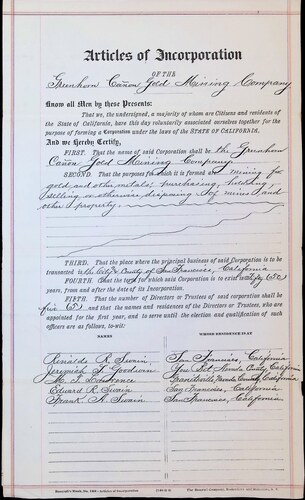 Articles of Incorporation
OF THE
Greenhorn Cañon Gold Mining Company
Know all Men by these Presents:
That we, the undersigned, a majority of whom are Citizens and residents of
the State of California, have this day voluntarily associated ourselves together for the
purpose of forming a Corporation under the laws of the STATE OF CALIFORNIA.
And we Hereby Certify,
FIRST. That the name of said Corporation shall be the Greenhorn
Cañon Gold Mining Company.
SECOND. That the purpose for which it is formed are mining for
gold and other metals, purchasing, holding,
selling or otherwise disposing of mines and
other property.
THIRD. That the place where the principal business of said Corporation is to be
transacted is the City & County of San Francisco, California
FOURTH. That the term for which said Corporation is to exist is fifty (50)
years, from and after the date of its Incorporation.
FIFTH. That the number of Directors or Trustees of said corporation shall be
five (5) and that the names and residences of the Directors or Trustees, who are
appointed for the first year, and to serve until the election and qualification of such
officers are as follows, to-wit:
NAMES WHOSE RESIDENCE IS AT
Renaldo R. Swain San Francisco, California
Jeremiah F. Goodwin You Bet, Nevada County, California
M. J. Lawrence Nevada County, California
Edward R. Swain San Francisco, California
Frank A. Swain San Francisco, California.
Articles of Incorporation